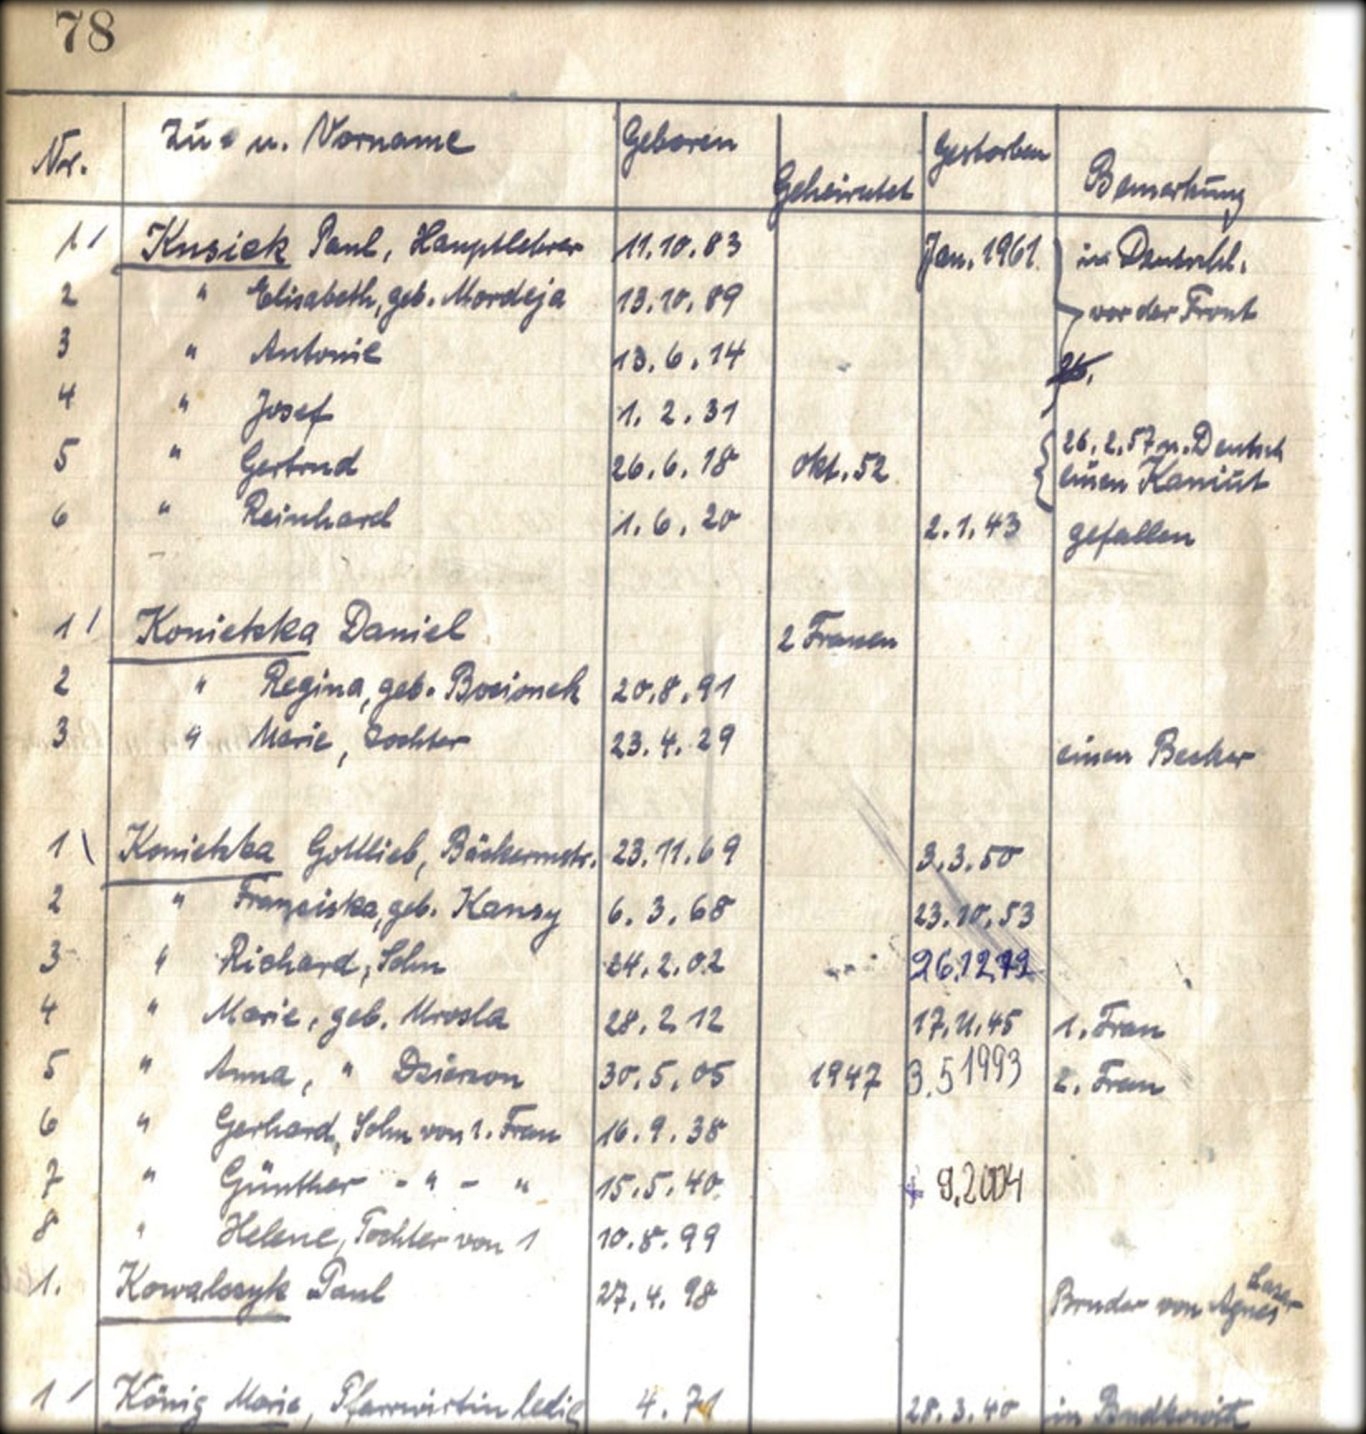 78
Nr. Zu- u. Vorname Geboren Geheiratet Gestorben Bemerkung
1 Kusiek Paul, Hauptlehrer 11.10.83 Jan. 1961 in Deutschl.
2 " Elisabeth, geb. Mordeja 13.10.89 vor der Front
3 " Antonie 13.6.14
4 " Josef 1.2.31
5 " Gertrud 26.6.18 Okt. 52 26.2.57 n. Deutsch
einen Kaniut
6 " Reinhard 1.6.20 2.1.43 gefallen
1 Konietzka Daniel 2 Frauen
2 " Regina, geb. Bocionek 20.8.91
3 " Marie, Tochter 23.4.29 einen Becker
1 Konietzka Gottlieb, Bäckermstr. 23.11.69 3.3.50
2 " Franziska, geb. Kansy 6.3.68 23.10.53
3 " Richard, Sohn 24.2.02
4 " Marie, geb. Mrosla 28.2.12 17.11.45 1. Frau
5 " Anna, " Dzierzon 30.5.05 1947 3.5 1993 2. Frau
6 " Gerhard, Sohn von 1. Frau 16.9.38
7 " Günther - " - " 15.5.40 9.2004
8 " Helene, Tochter von 1 10.8.99
1. Kowalczyk Paul 27.4.98 Bruder von Agnes
1 König Marie, Pfarrwirtin ledig 4.71 28.3.40 in Budkowitz